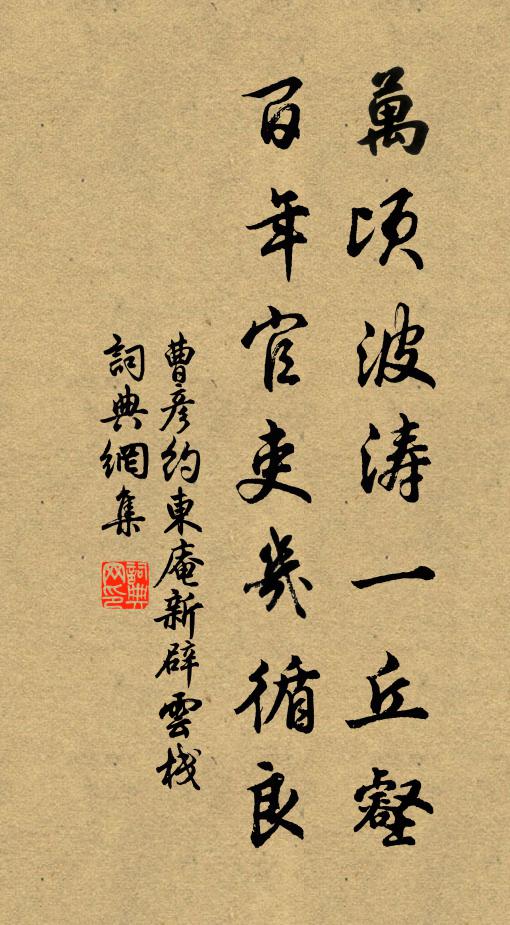 萬頃波涛一丘壑
百年官吏幾循良
曹彦約東庵新辟雲棧
詞典網集
詞典网印